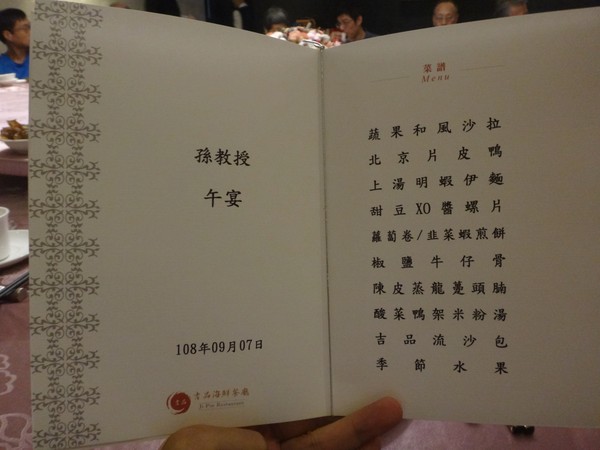 孫教授
午宴
108年09月07日
吉品海鮮餐廳
菜譜
Menu
蔬果和風沙拉
北京片皮鴨
上湯明蝦伊麵
甜豆XO醬螺片
蘿蔔卷/韭菜蝦煎餅
椒鹽牛仔骨
陳皮蒸龍躉頭腩
酸菜鴨架米粉湯
吉品流沙包
季節水果